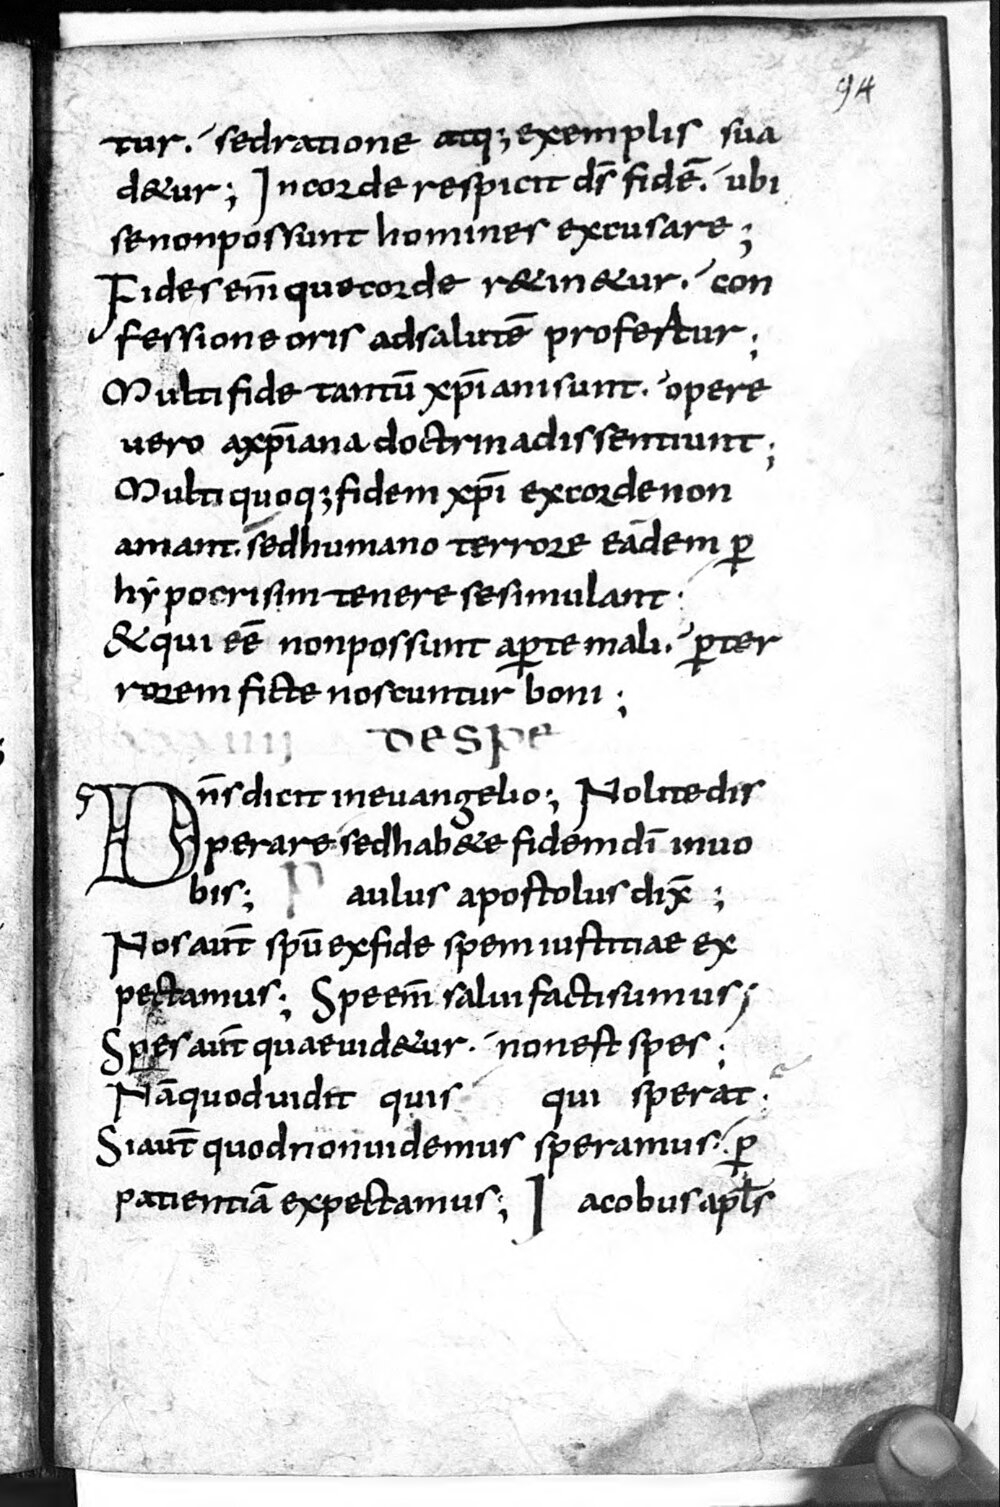 94
tur. sedratione atq; exemplis sua
d&ur; Incorde respicit d̄s fidē. ubi
senonpossunt homines excusare;
Fides eni̅ que corde r&in&ur. con
fessione oris adsalutē profertur;
Multi fide tantū xp̄iani sunt. opere
uero axp̄iana doctrina dissentiunt;
Multi quoq; fidem xp̄i excorde non
amant. sed humano terrore eādem ꝑ
hẏpocrisim tenere se simulant.
&qui eē non possunt aꝑte mali. ꝑter
rorem ficte noscuntur boni;
xxxiiii de spe
Dn̄s dicit in euangelio; Nolite dis
perare sed hab&e fidem dī inuo
bis; Paulus apostolus dix̄;
Nos aut̄ spū exfide spem iustitiae ex
pectamus; Spe eni̅ salui facti sumus;
Spes aut̄ quae uid&ur. non est spes;
Nā quod uidit quis qui sperat.
Si aut̄ quod non uidemus speramus. ꝑ
patientiā expectamus; Iacobus apl̄s